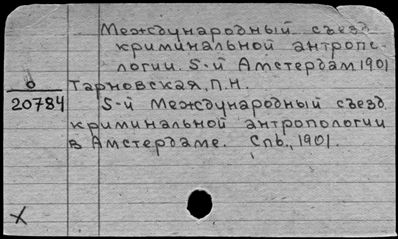 Международный съезд
криминальной антропо-
логии. 5-й Амстердам 1901
О
20784
Тарновская, П.Н.
5-й Международный съезд
криминальной антропологии
в Амстердаме. Спб., 1901.
X